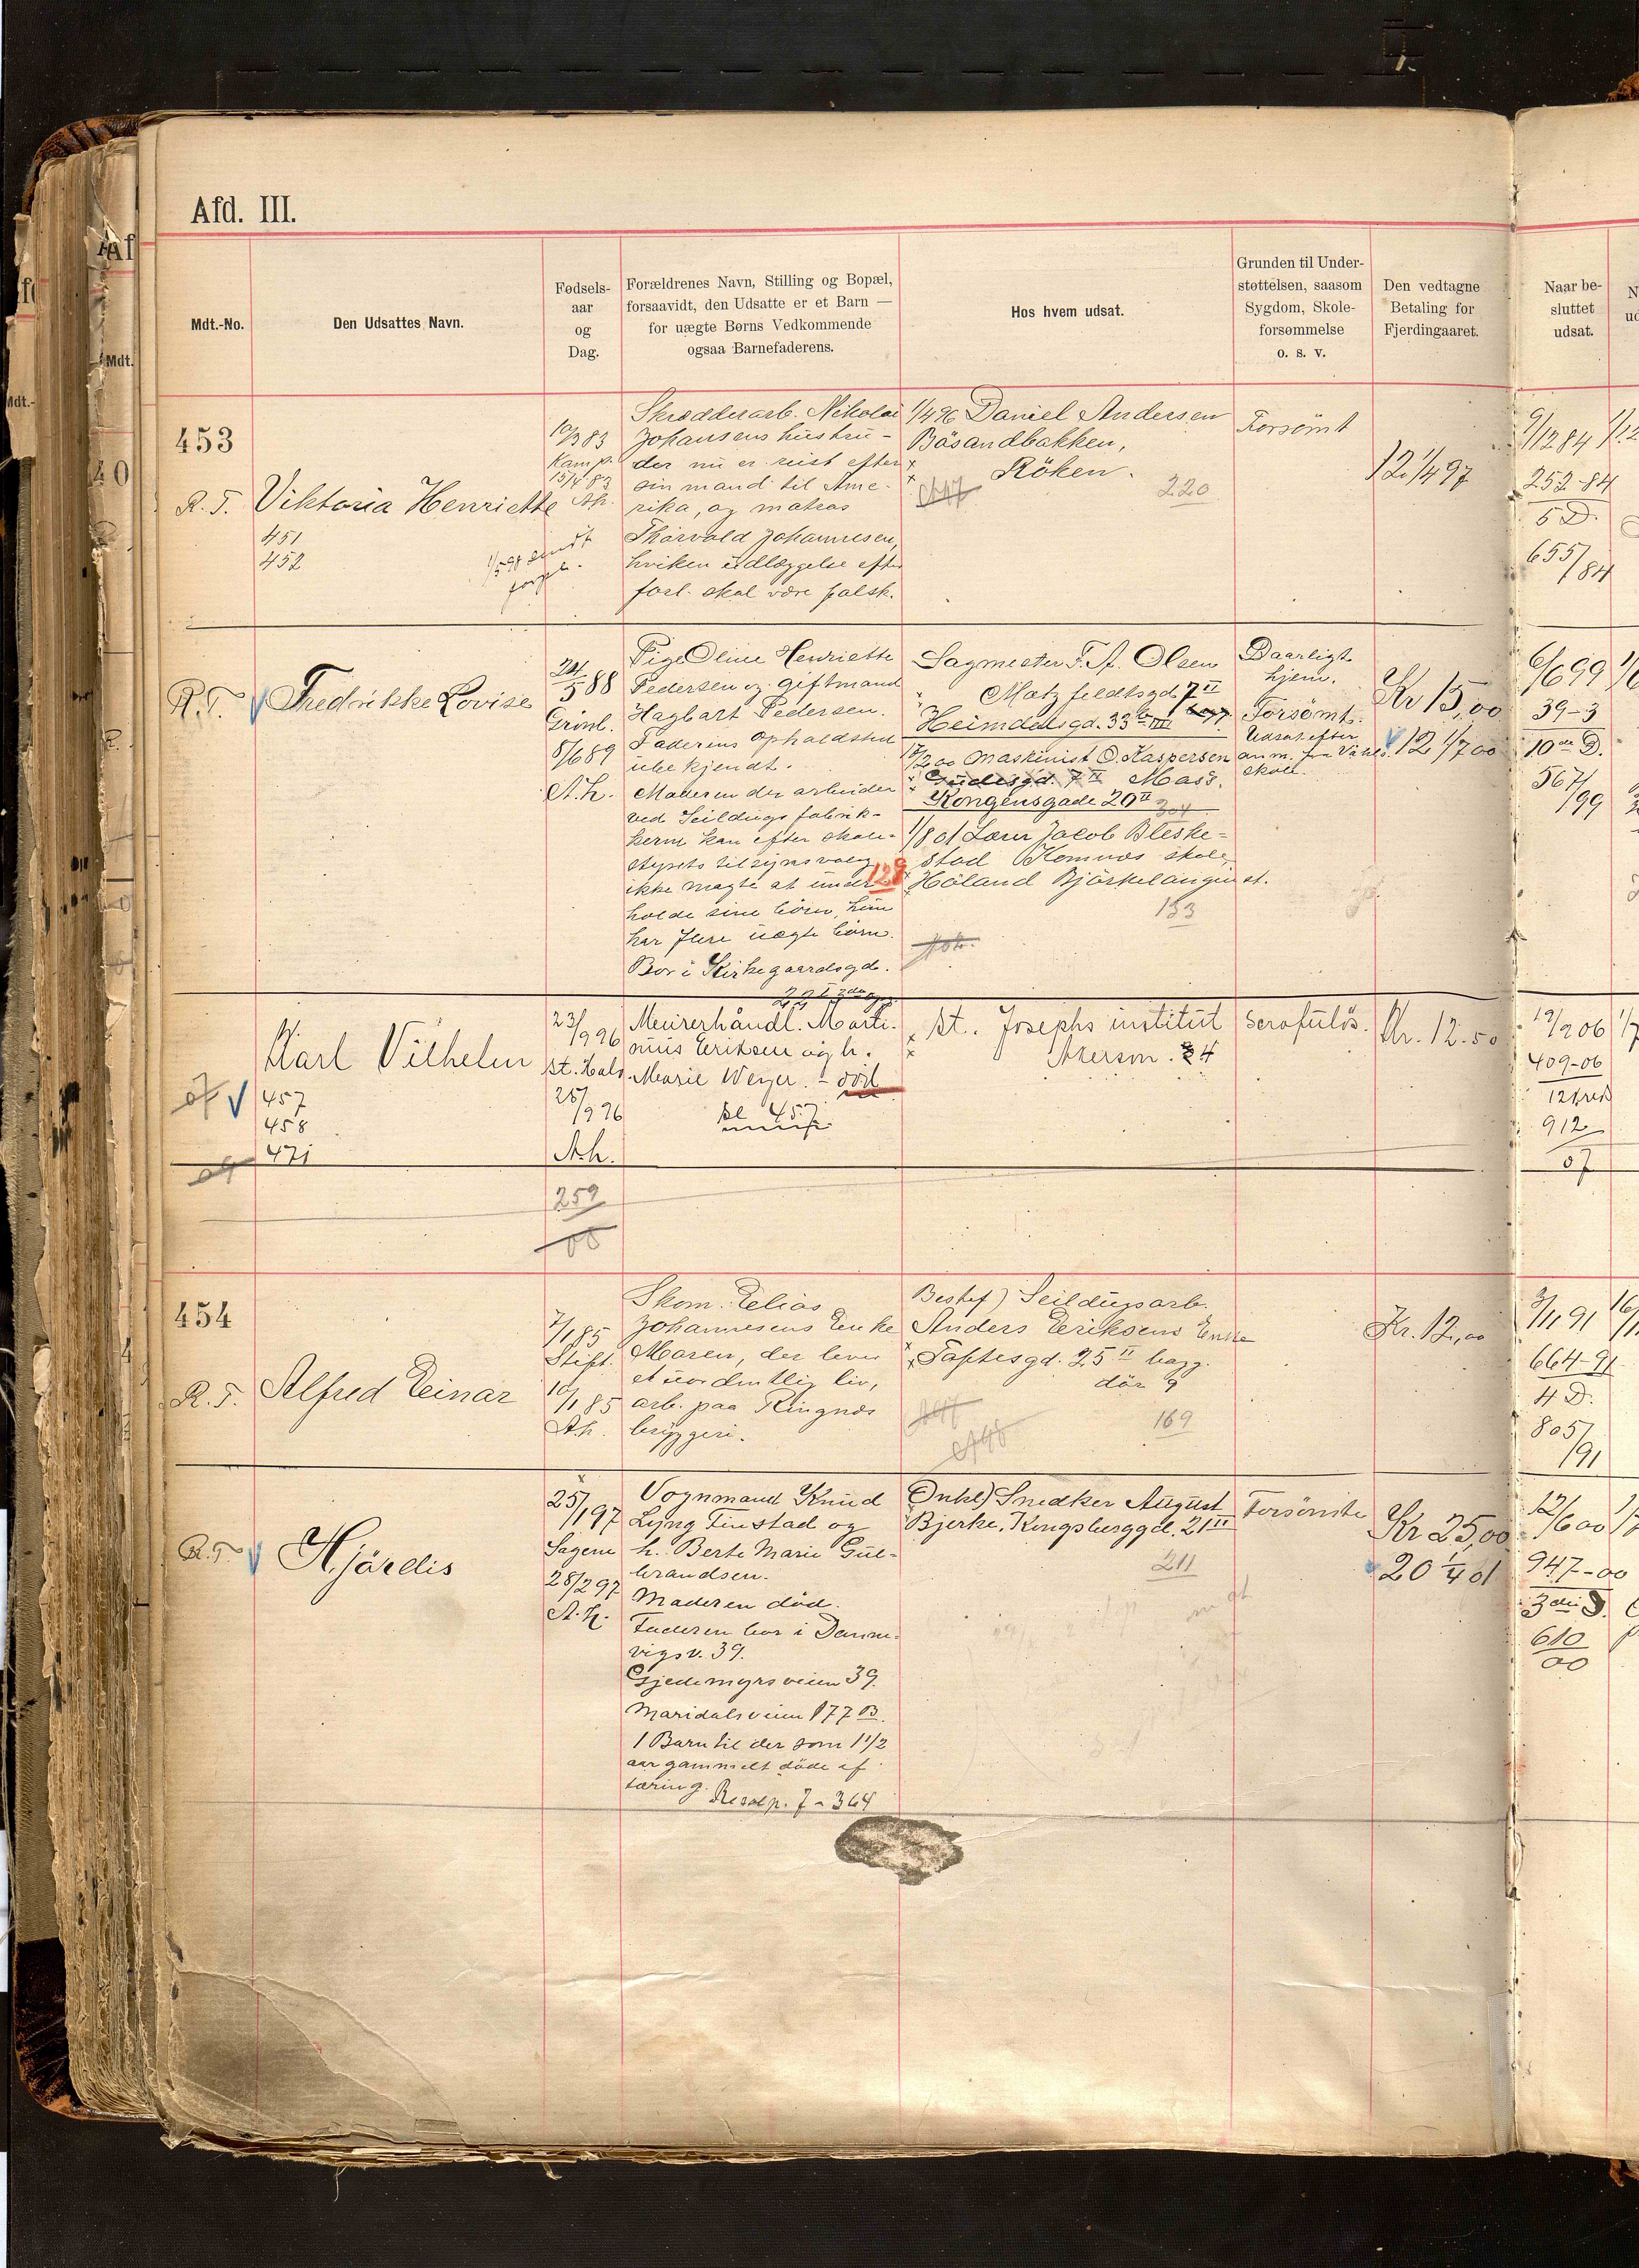 Afd. III.
Mdt.-No.
Den Udsattes Navn.
Fødsels-
aar
og
Dag.
Forældrenes Navn, Stilling og Bopæl,
forsaavidt, den Udsatte er et Barn —
for uægte Børns Vedkommende
ogsaa Barnefaderens.
Hos hvem udsat.
Grunden til Under-
støttelsen, saasom
Sygdom, Skole-
forsømmelse
o. s. v.
Den vedtagne
Betaling for
Fjerdingaaret.
Naar be-
sluttet
udsat.
453
R. T. Viktoria Henriette
451
452
1/5 98 sendt
10/3 83
Kamp.
15/4 83
Ah.
Skrædderarb. Nikolai
Johansens hustru -
der nu er reist efter
sin mand til Ame-
rika, og matros
Thorvald Johannesen,
hvilken udlæggelse efter
forl. skal være falsk.
1/4 96 Daniel Andersen
Bösandbakken,
Röken.
220
Forsömt
12 1/4 97
9/12 84
252-84
5 D.
655/84
R. T. Fredrikke Lovise
24/5 88
Grönl.
8/6 89
A. h.
Pige Oline Henriette
Pedersen og giftmand
Hagbart Pedersen.
Faderens opholdsted
ube kjendt.
Moderen der arbeider
ved Seildugsfabrik-
kerne kan efter skole-
styrets tilsynsvalg
ikke magte at under
holde sine börn, hun
har flere uægte börn.
Bor i Kirkegaardsgd.
Sagmester F. A. Olsen
Matzfeldtsgd. 7 II
Heimdalsgd. 33 b III
12/2 00 Maskinist O. Kaspersen
Gudesgd. 7 II Mass.
Kongensgade 20 II
304
1/8 01 Lærer Jacob Bleske-
stad Komnæs skole,
128
Höland Björkelangen st.
153
Daarligt
hjem.
Forsömt.
Udsat efter
anm. fra Vahls
skole.
Kr 15,00
12 1/7 00
6/6 99
39-3
10de D.
567/99
Karl Vilhelm
07
457
458
471
09
23/9 96
St. Halv.
25/9 96
A.h.
259
08
Murerhåndl. Marti-
nius Eriksen og h.
Marie Weyer. - död
se 457
St. Josephs institut
Akersvn. 4
Scrofulös.
Kr. 12.50
19/2 06
409-06
12 kred
912
07
454
R. T. Alfred Einar
7/1 85
Stift.
10/1 85
A.h.
Skom. Elias
Johannesens Enke
Maren, der lever
et uordentlig liv,
arb. paa Ringnæs
bryggeri.
Bestef) Seildugsarb.
Anders Eriksens Enke
Toftesgd. 25 II bagg.
dör 9
169
Kr. 12,00
3/11 91
664-91
4 D.
805/91
R. T. Hjördis
25/1 97
Sagene
28/2 97
A. h.
Vognmand Knud
Lyng Finstad og
h. Berte Marie Gul-
brandsen.
Moderen död.
Faderen bor i Danne-
vigsv. 39.
Gjedemyrsveien 39.
Maridalsveien 177 B.
1 Barn til der som 1 1/2
aar gammelt döde af
tæring.
Resolp. 7 - 364
Onkel) Snedker August
Bjerke, Kongsberggd. 21 II
211
Forsömte
Kr 25,00
20 1/4 01
12/6 00
947-00
3die D.
610
00